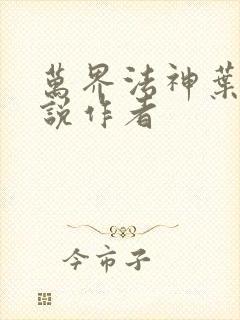 萬界法神葉
說作者
今市子